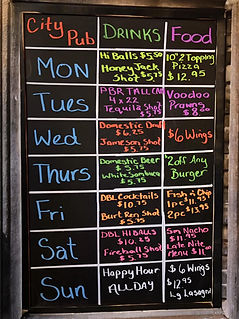 City Pub
DRINKS
Food
MON
Hi Balls $5.50
Honey Jack
Shot $5.75
10" 2 Topping
Pizza
$12.95
Tues
PBR TALL CAN
4 x 22
Tequila Shot
$5.75
Voodoo
Prawns
$8.50
Wed
Domestic Draft
$6.25
Jameson Shot
$5.75
$6 Wings
Thurs
Domestic Beer
$5.75
White Sambuca
$5.75
$2 off Any
Burger
Fri
DBL Cocktails
$10.75
Burt Ren Shot
$5.75
Fish n Chip
1pc $11.95
2pc $13.95
Sat
DBL HI BALLS
$10.50
Fireball Shot
$5.75
Sm Nacho
$11.95
Late Nite
Menu $11.00
Sun
Happy Hour
ALL DAY
$6 Wings
$12.95
Lg Lasagna